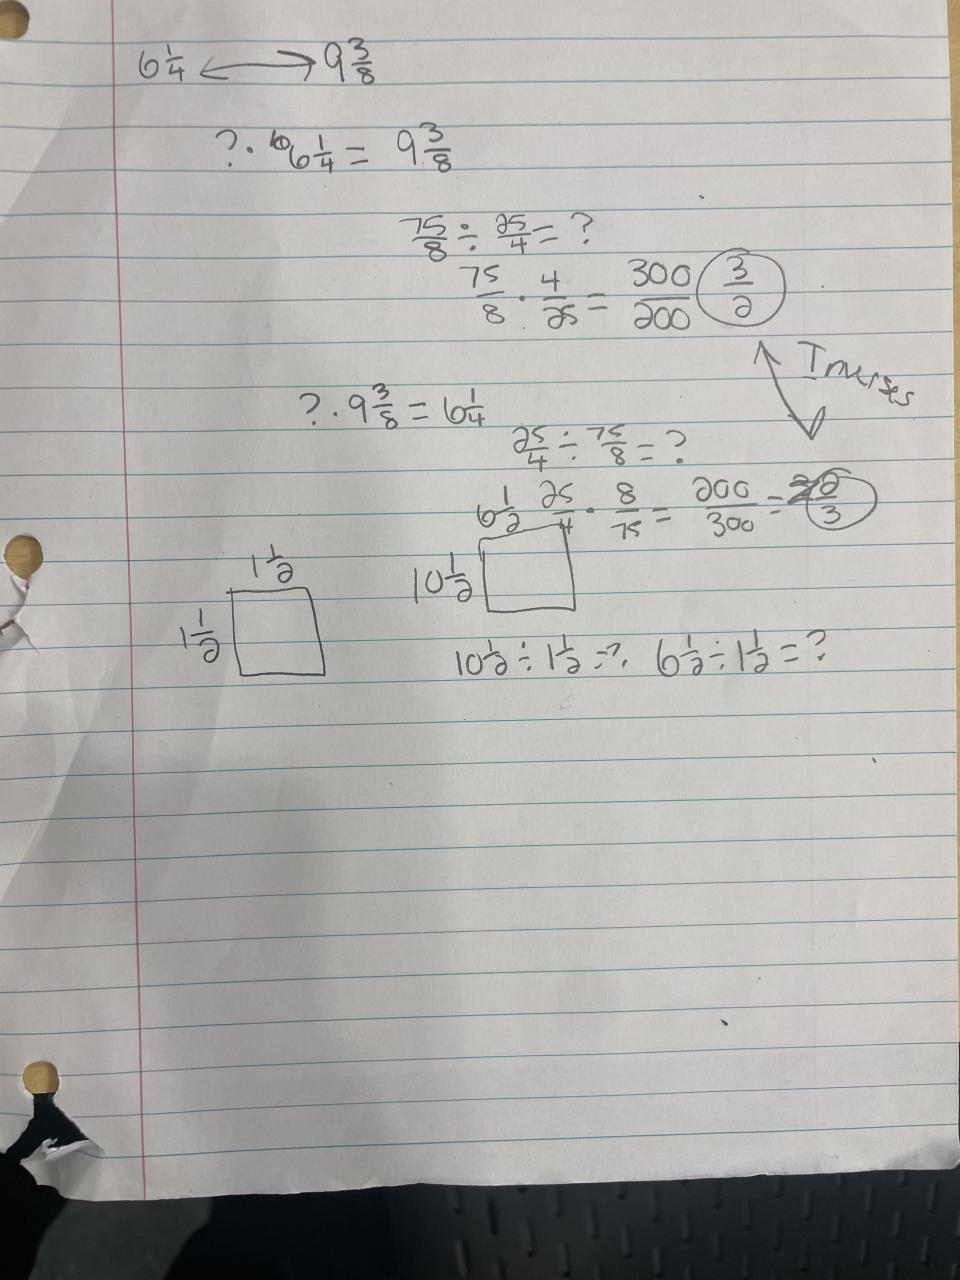 6 1/4 ⟷ 9 3/8
? · 6 1/4 = 9 3/8
75/8 ÷ 25/4 = ?
75/8 · 4/25 = 300/200 3/2
Inverses
? · 9 3/8 = 6 1/4
25/4 ÷ 75/8 = ?
25/4 · 8/75 = 200/300 = 2/3
6 1/2
10 1/2
1 1/2
1 1/2
10 1/2 ÷ 1 1/2 = ? 6 1/2 ÷ 1 1/2 = ?